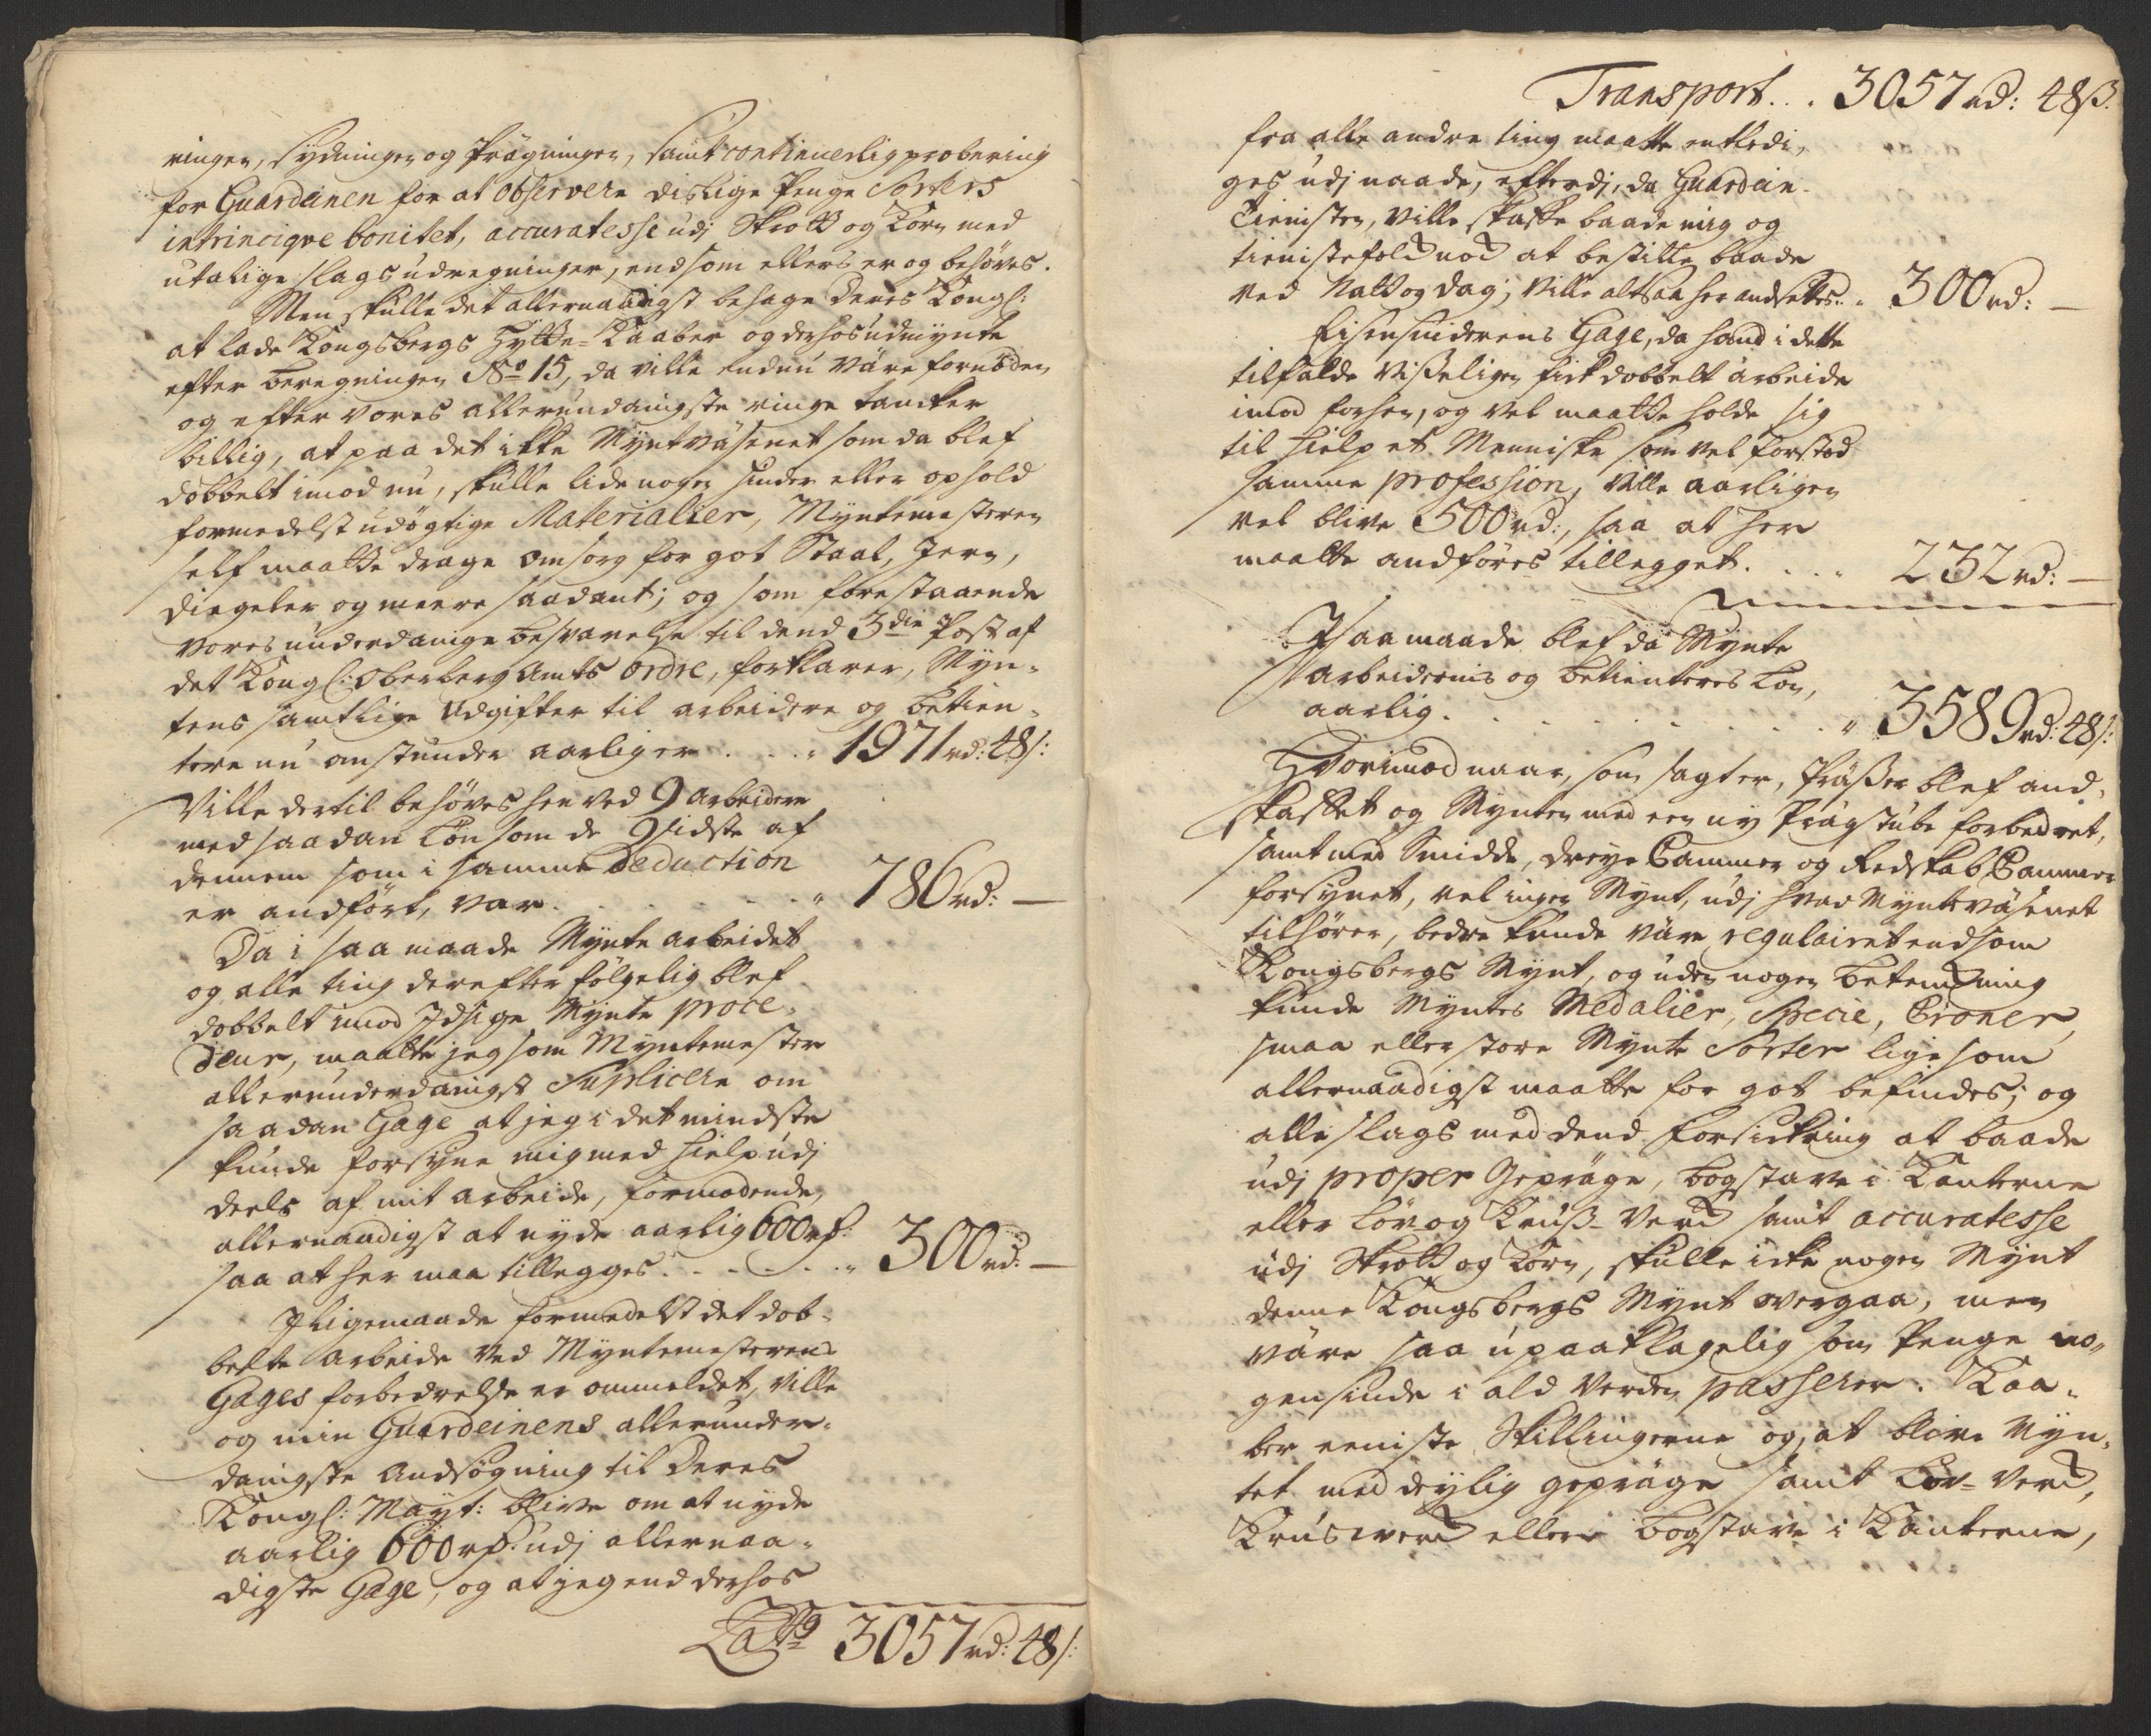 ringen, Sydningen og Prägningen, samt continuerlig probering
for Guardeinen for at observere dislige Penge Sorters
intrincique bonitet, accuratesse udj Skrott og Korn med
utalige slags udregninger, endsom ellers er og behöves.
Men skulle det allernaadigst behage Deres Kongl:
at lade Kongsbergs Hytte-Kaaber og derhos udmynte
efter Beregningen No 15, da ville endnu väre fornöden
og efter vores allerundanigste ringe tancker
billig, at paa det ikke Myntväsenet som da blef
dobbelt imod nu, skulle lide nogen hinder eller ophold
formedelst udögtige Materialier, Myntemesteren
self maatte drage omsorg for got Staal, Jern,
Diegeler og meere saadant; og som forestaaende
vores underdanige besvarelse til dend 3die Post af
det Kongl: Oberberg Amts ordre, forklarer, Myn-
tens samtlige Udgifter til arbeidere og betien-
tere nu omstunder aarligen . . . " 1971 rd: 48 s:
Ville dertil behöves hen ved 9 arbeidere
med saadan Lön som de 9 sidste af
dennem som i samme deduction
er andfört, var . . . . . . " 786 rd: —
Da i saa maade Mynte arbeidet
og alle ting derefter fölgelig blef
dobbelt imod Idsige Mynte proce-
deur, maatte jeg som Myntemester
allerunderdanigst Suplicere om
saadan Gage at jeg i det mindste
kunde forsyne mig med hielp udj
deels af mit arbeide, formodende,
allernaadigst at nyde aarlig 600 rd:
saa at her maa tillegges . . . . . " 300 rd: —
J ligemaade formedelst det dob-
belte arbeide ved Myntemesterens
Gages forbedrelse er ommeldet, ville
og min Guardeinens allerunder-
danigste Andsögning til Deres
Kongl: Mayt: blive om at nyde
aarlig 600 rd: udj allernaa-
digste Gage, og at jeg end derhos
Latus 3057 rd: 48 s:
Transport . . . 3057 rd: 48 ß.
fra alle andre ting maatte entledi-
ges udj naade, efterdj, da Guardein
Tienisten, ville skaffe baade mig og
tienistefolk nok at bestille baade
ved Natt og Dag; ville altsaa her andsettes . " 300 rd: —
Eisensniderens Gage, da hand i dette
tilfälde visseligen fick dobbelt arbeide
imod forhen, og vel maatte holde sig
til hielp et Menniske som vel forstod
samme profession, ville aarligen
vel blive 500 rd:, saa at her
maatte andföres tillegget . . . . " 232 rd: —
J saa maade blef da Mynte
arbeidernis og betienteres Lön,
aarlig . . . . . . . . " 3589 rd: 48 s:
Hvorimod naar, som sagt er, Prässer blef and-
skaffet og Mynten med een ny Prägstube forbedret,
samt med Smidde, dreye Cammer og Redskab Cammer
forsynet, vel ingen Mynt, udj hvad Myntväsenet
tilhörer, bedre kunde väre regulairet endsom
Kongsbergs Mynt, og uden nogen betenckning
kunde Myntes Medalier, Specie, Croner,
smaa eller store Mynte Sorter ligesom
allernaadigst maatte for got befindes; og
alle slags med dend forsickring at baade
udj proper Gepräge, bogstave i Kanterne
eller Löv- og Kruss-verck samt accuratesse
udj Skrott og Korn, skulle icke nogen Mynt
denne Kongsbergs Mynt overgaa, men
väre saa upaaklagelig som Penge no-
gensinde i ald Verden passerer. Kaa-
ber eeniste Skillingerne og, at blive Myn-
tet med deylig gepräge samt Löv-verck,
Kruswerck eller bogstave i Kanterne,